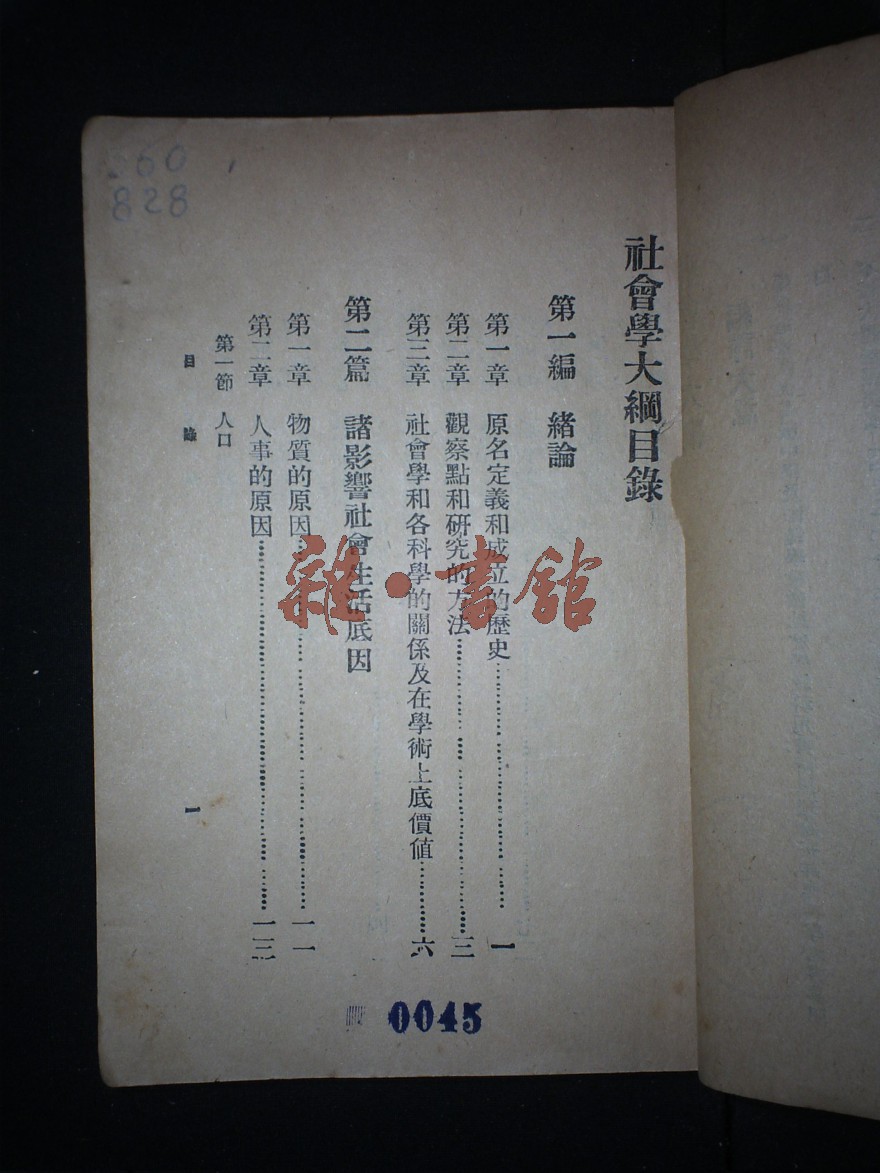 社會學大綱目錄
第一編 緒論
第一章 原名定義和成立的歷史………一
第二章 觀察點和研究的方法………三
第三章 社會學和各科學的關係及在學術上底價値………六
第二篇 諸影響社會生活底因
第一章 物質的原因………一一
第二章 人事的原因………一三
第一節 人口
目錄
一
60
828
雜·書館
0045